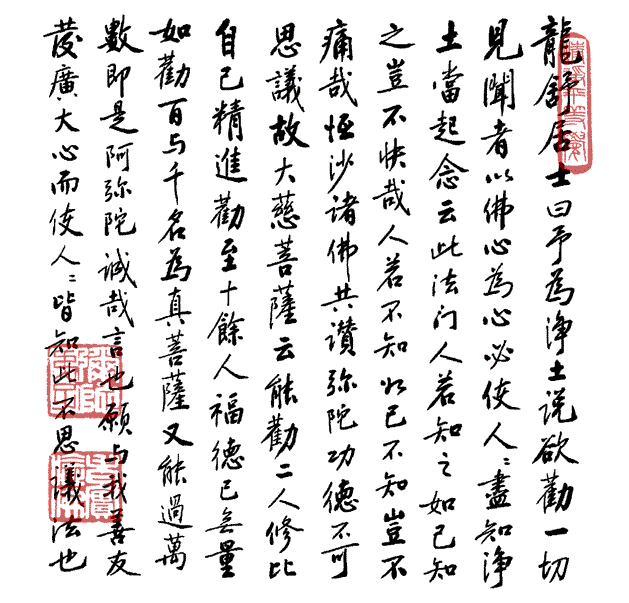 龍舒居士曰予為淨土说欲勸一切
見聞者以佛心為心必使人〻盡知淨
土當起念云此法门人若知之如己知
之豈不快哉人若不知水己不知豈不
痛哉恒沙諸佛共讚弥陀功德不可
思議故大慈菩薩云能勸二人修比
自己精進勸至十餘人福德已無量
如勸百与千名為真菩薩又能過萬
數即是阿弥陀誠哉言也願与我善友
發廣大心而使人〻皆知此不思議法也